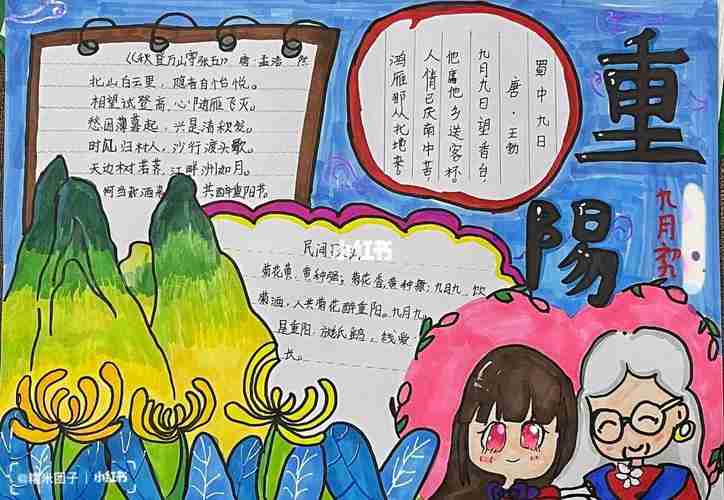 《秋登万山寄张五》 唐·孟浩然
北山白云里,隐者自怡悦。
相望试登高,心随雁飞灭。
愁因薄暮起,兴是清秋发。
时见归村人,沙行渡头歇。
天边树若荠,江畔洲如月。
何当载酒来,共醉重阳节。
蜀中九日
唐·王勃
九月九日望香台,
他席他乡送客杯。
人情已厌南中苦,
鸿雁那从北地来。
重陽
九月初九
民间
小红书
菊花黄,黄种强;菊花香,黄种康;九月九,饮
菊酒,人共菊花醉重阳。九月九,
是重阳,放纸鹞,线
长。
@糯米团子 | 小红书